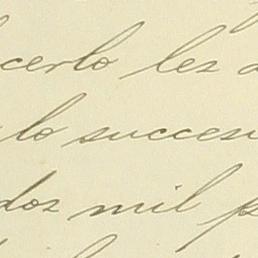 cerlo lez a
lo succesi
dos mil p